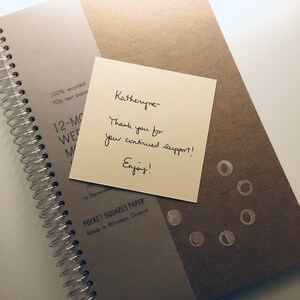 100% recycled
12-MO
WEE
M
Katheryne-
Thank you for
your continued support!
Enjoy!
POCKET SQUARES PAPER
Made in Windsor, Ontario